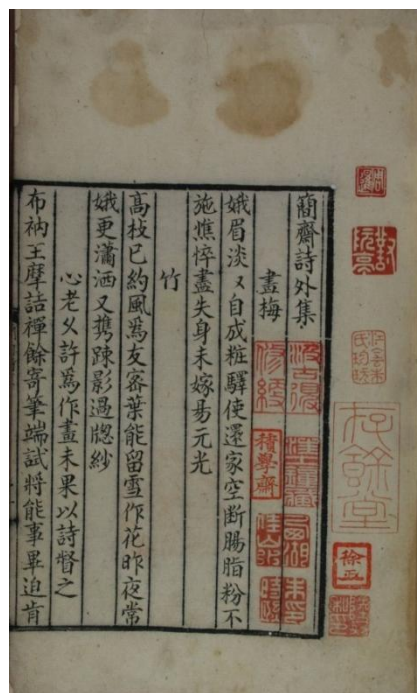 簡齋詩外集
畫梅
娥眉淡〻自成粧驛使還家空斷腸脂粉不
施憔悴盡失身未嫁易元光
竹
高枝已約風為友密葉能留雪作花昨夜常
娥更瀟洒又携踈影過牎紗
心老久許為作畫未果以詩督之
布衲王摩詰禪餘寄筆端試將能事畢迫肯
阮亭
存餘堂
徐
積學齋